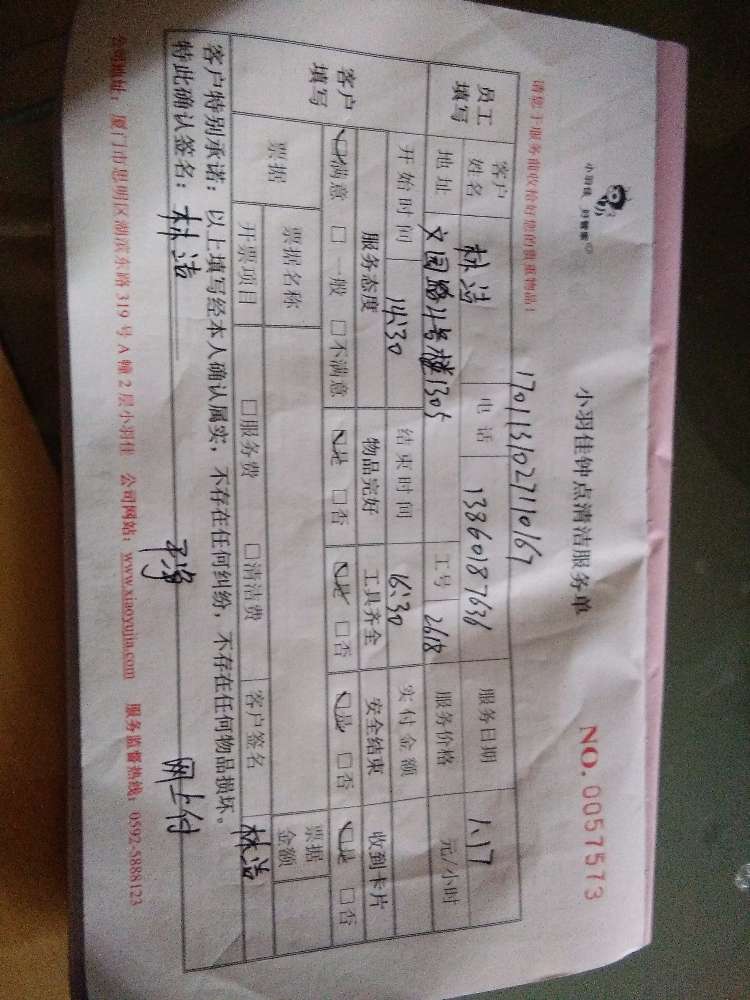 小羽佳 好管家
小羽佳钟点清洁服务单
NO. 0057573
请您于服务前收拾好您的贵重物品！
1701131027110167
员工填写 客户姓名 林浩 电话 13860187636 服务日期 1.17
地址 文园路21号楼1305 工号 2618 服务价格 元/小时
开始时间 14:30 结束时间 16:30 实付金额
客户填写 服务态度 物品完好 工具齐全 安全结束 收到卡片
☑满意 □一般 □不满意 ☑是 □否 ☑是 □否 ☑是 □否 ☑是 □否
票据 票据名称 票据金额
开票项目 □服务费 □清洁费 客户签名 林浩
客户特别承诺：以上填写经本人确认属实，不存在任何纠纷，不存在任何物品损坏。
特此确认签名：林浩 干净 网上付
公司地址：厦门市思明区湖滨东路319号A幢2层小羽佳 公司网站：www.xiaoyujia.com 服务监督热线：0592-5888123